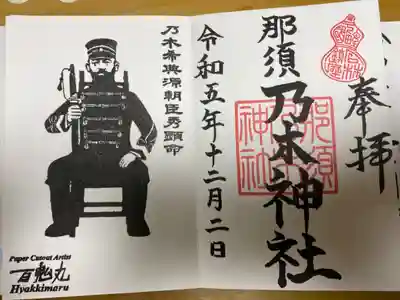 奉拝
那須乃木神社
那須乃木神社
令和五年十二月二日
乃木希典源朝臣秀顕命
Paper Cutout Artist
百鬼丸
Hyakkimaru